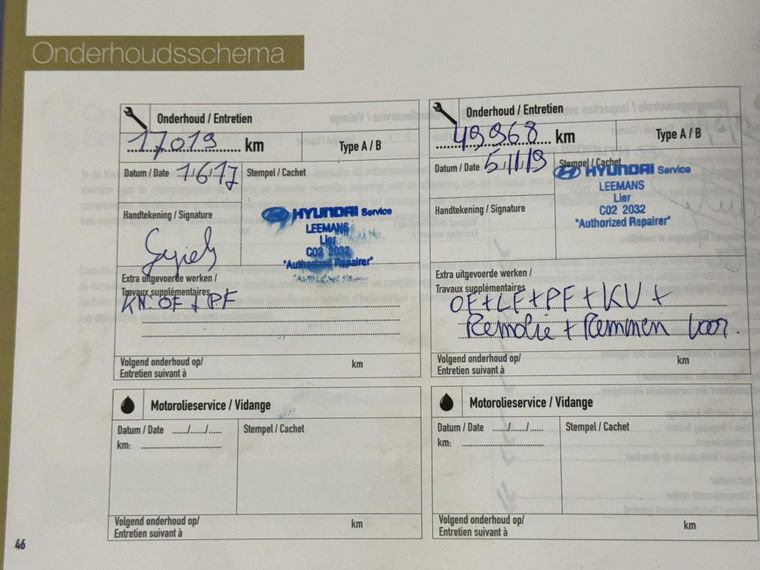 Onderhoudsschema
Onderhoud / Entretien
17019 km
Type A / B
Datum / Date 7/6/17
Stempel / Cachet
Handtekening / Signature
HYUNDAI Service
LEEMANS
Lier
C02 2032
"Authorized Repairer"
Extra uitgevoerde werken /
Travaux supplémentaires
OF + PF
Volgend onderhoud op/
Entretien suivant à
km
Onderhoud / Entretien
49968 km
Type A / B
Datum / Date 5/11/19
Stempel / Cachet
HYUNDAI Service
LEEMANS
Lier
C02 2032
"Authorized Repairer"
Handtekening / Signature
Extra uitgevoerde werken /
Travaux supplémentaires
OF+LF+PF+KV+
Remolie + Remmen voor.
Volgend onderhoud op/
Entretien suivant à
km
Motorolieservice / Vidange
Datum / Date ....../....../......
km: ..............................
Stempel / Cachet
Volgend onderhoud op/
Entretien suivant à
km
Motorolieservice / Vidange
Datum / Date ....../....../......
km: ..............................
Stempel / Cachet
Volgend onderhoud op/
Entretien suivant à
km
46